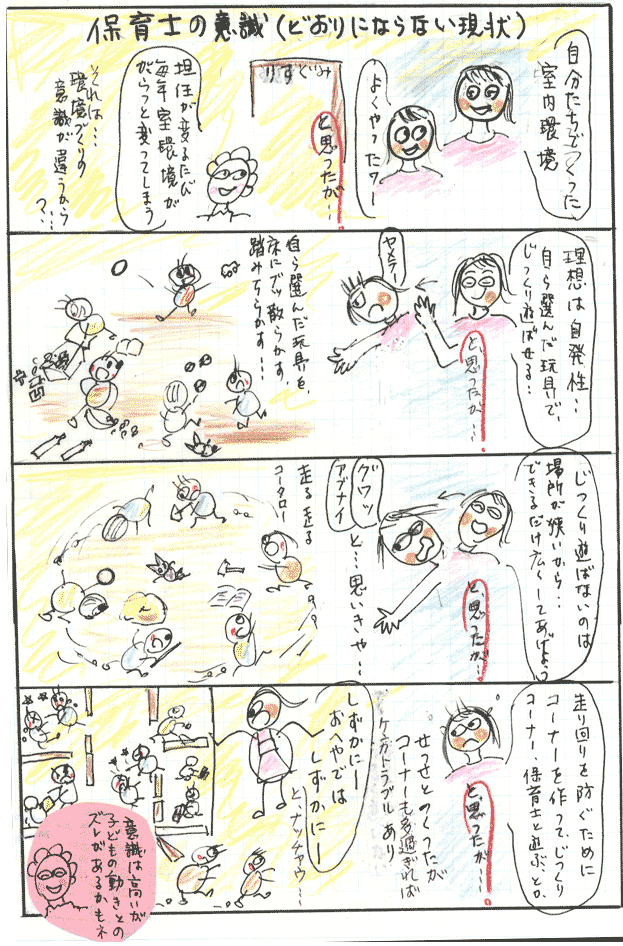 保育士の意識(どおりにならない現状)
自分たちでつくった
室内環境
よくやったワー
りすぐみ
と思ったが…
担任が変るたび
毎年室環境が
がらっと変ってしまう
それは…
環境づくりの
意識が違うから
?…
理想は自発性…
自ら選んだ玩具で、
じっくり遊ばせる…
ヤメテー
と、思ったが…
自ら選んだ玩具を、
床にブチ散らかす、
踏みちらかす…
じっくり遊ばないのは
場所が狭いから…
できるだけ広くしてあげよう
と、思ったが…
グワッ
アブナイ
と…思いきや…
走る走る
コータロー
走り回りを防ぐために
コーナーを作って、じっくり
コーナー、保育士と遊ぶ、とか
と思ったが…
せっせとつくったが
コーナーも多過ぎれば
ケンカトラブルあり
しずかにー
おへやでは
しずかにー
と、ナッチャウ…
意識は高いが
子どもの動きとの
ズレがあるかもネ